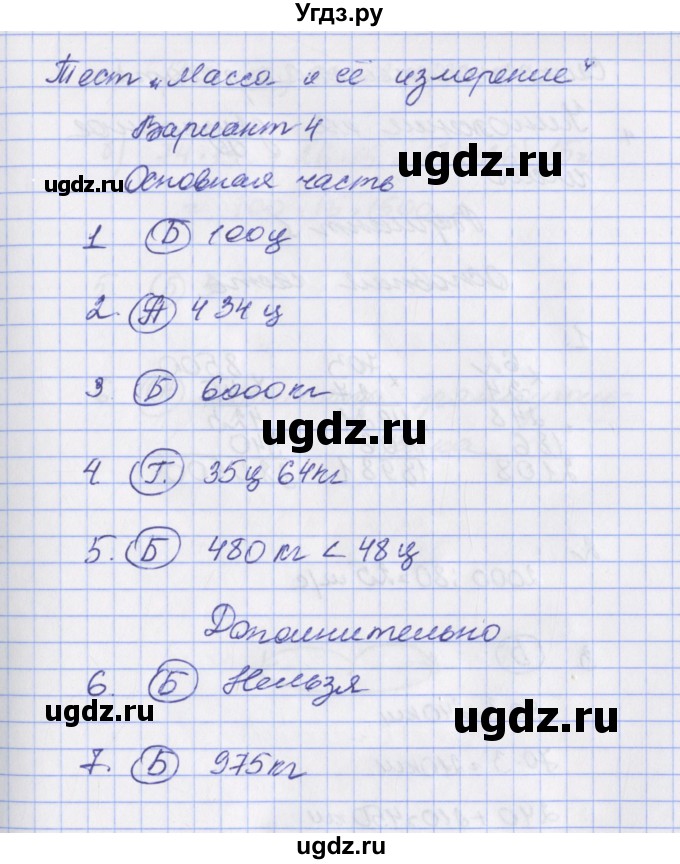 Угдз.ру
Тест „Масса и её измерение"
Вариант 4
ugdz.ru
ugdz.ru Основная часть
1 Б 100ц
2. А 434 ц
3 Б 6000кг
ugdz.ru
4. Г. 35ц 64кг
5. Б 480 кг < 48 ц
Дополнительно
6. Б Нельзя
ugdz.ru ugdz.ru
7. Б 975кг
ugdz.ru
Угдз.ру